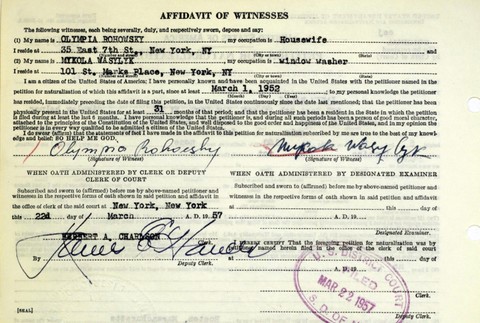 AFFIDAVIT OF WITNESSES
The following witnesses, each being severally, duly, and respectively sworn, depose and say:
(1) My name is OLYMPIA ROHOVSKY, my occupation is Housewife
I reside at 35 East 7th St, New York, NY and
(2) My name is MYKOLA WASYLYK, my occupation is window washer
I reside at 101 St. Marks Place, New York, NY
I am a citizen of the United States of America; I have personally known and have been acquainted in the United States with the petitioner named in the
petition for naturalization of which this affidavit is a part, since at least March 1, 1952 to my personal knowledge the petitioner
has resided, immediately preceding the date of filing this petition, in the United States continuously since the date last mentioned; that the petitioner has been
physically present in the United States for at least 31 months of that period; and that the petitioner has been a resident in the State in which the petition
is filed during at least the last 6 months. I have personal knowledge that the petitioner is, and during all such periods has been a person of good moral character,
attached to the principles of the Constitution of the United States, and well disposed to the good order and happiness of the United States, and in my opinion the
petitioner is in every way qualified to be admitted a citizen of the United States.
I do swear (affirm) that the statements of fact I have made in the affidavit to this petition for naturalization subscribed by me are true to the best of my knowledge
and belief: SO HELP ME GOD.
Olympia Rohovsky Mykola Wasylyk
(Signature of Witness) (Signature of Witness)
WHEN OATH ADMINISTERED BY CLERK OR DEPUTY
CLERK OF COURT
Subscribed and sworn to (affirmed) before me by above-named petitioner and
witnesses in the respective forms of oath shown in said petition and affidavit in
the office of the clerk of said court at New York, New York
this 22d day of March A. D. 1957
HERBERT A. CHARLSON
Clerk.
By
Deputy Clerk.
[SEAL]
WHEN OATH ADMINISTERED BY DESIGNATED EXAMINER
Subscribed and sworn to (affirmed) before me by above-named petitioner
and witnesses in the respective forms of oath shown in said petition and affidavit
at this day of
A. D. 19
Designated Examiner.
I HEREBY CERTIFY That the foregoing petition for naturalization was by
petitioner named herein filed in the office of the clerk of said court
this day of
A. D. 19
Clerk.
Deputy Clerk.
U.S. DISTRICT COURT
FILED
MAR 22 1957
S. D. OF N.Y.